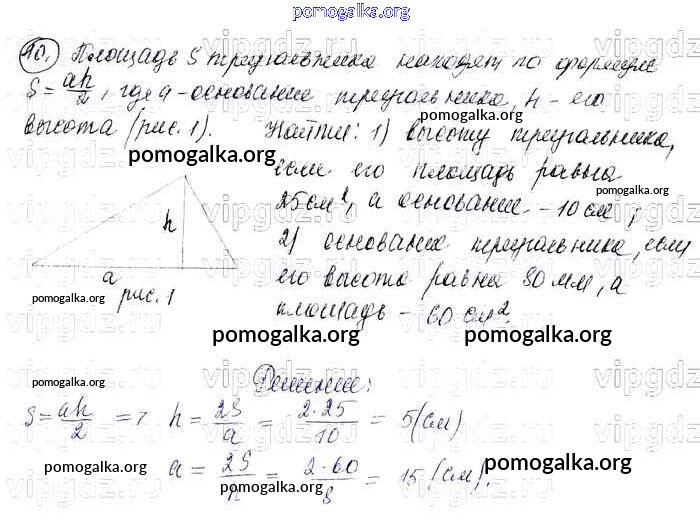 pomogalka.org
10. Площадь S треугольника находят по формуле
S = ah/2, где a - основание треугольника, h - его
высота (рис. 1). Найти: 1) высоту треугольника,
pomogalka.org
если его площадь равна
pomogalka.org
25 см², а основание - 10 см;
h
2) основание треугольника, если
a
его высота равна 80 мм, а
pomogalka.org
рис. 1
площадь - 60 см².
pomogalka.org pomogalka.org
Решение:
pomogalka.org
S = ah/2 => h = 2S/a = 2·25/10 = 5 (см)
pomogalka.org
a = 2S/h = 2·60/8 = 15 (см).
pomogalka.org
pomogalka.org
vipgdz.ru